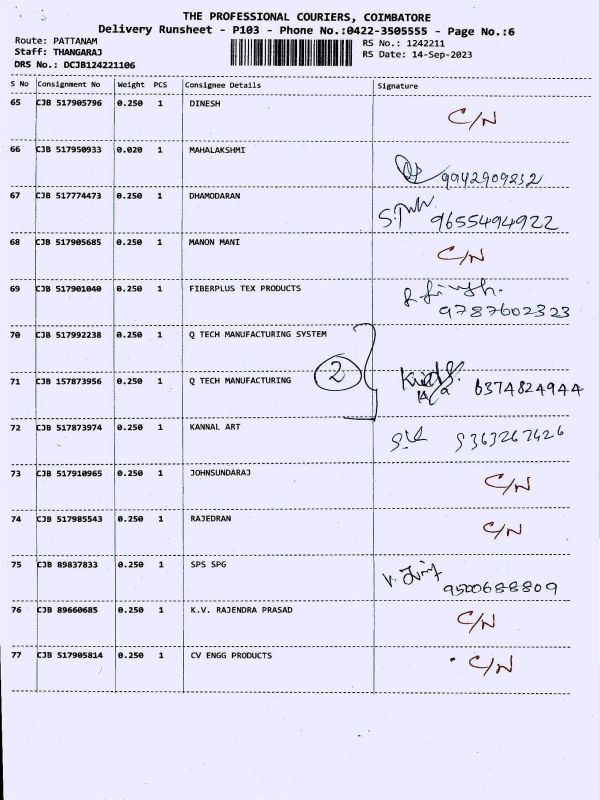 THE PROFESSIONAL COURIERS, COIMBATORE
Delivery Runsheet - P103 - Phone No.:0422-3505555 - Page No.:6
Route: PATTANAM
RS No.: 1242211
Staff: THANGARAJ
RS Date: 14-Sep-2023
DRS No.: DCJB124221106
S No Consignment No Weight PCS Consignee Details Signature
65 CJB 517905796 0.250 1 DINESH C/N
66 CJB 517950933 0.020 1 MAHALAKSHMI 9942909232
67 CJB 517774473 0.250 1 DHAMODARAN 9655494922
68 CJB 517905685 0.250 1 MANON MANI C/N
69 CJB 517901040 0.250 1 FIBERPLUS TEX PRODUCTS 9787602323
70 CJB 517992238 0.250 1 Q TECH MANUFACTURING SYSTEM
71 CJB 157873956 0.250 1 Q TECH MANUFACTURING 2 6374824944
72 CJB 517873974 0.250 1 KANNAL ART 9363267426
73 CJB 517910965 0.250 1 JOHNSUNDARAJ C/N
74 CJB 517985543 0.250 1 RAJEDRAN C/N
75 CJB 89837833 0.250 1 SPS SPG 9500688809
76 CJB 89660685 0.250 1 K.V. RAJENDRA PRASAD C/N
77 CJB 517905814 0.250 1 CV ENGG PRODUCTS C/N